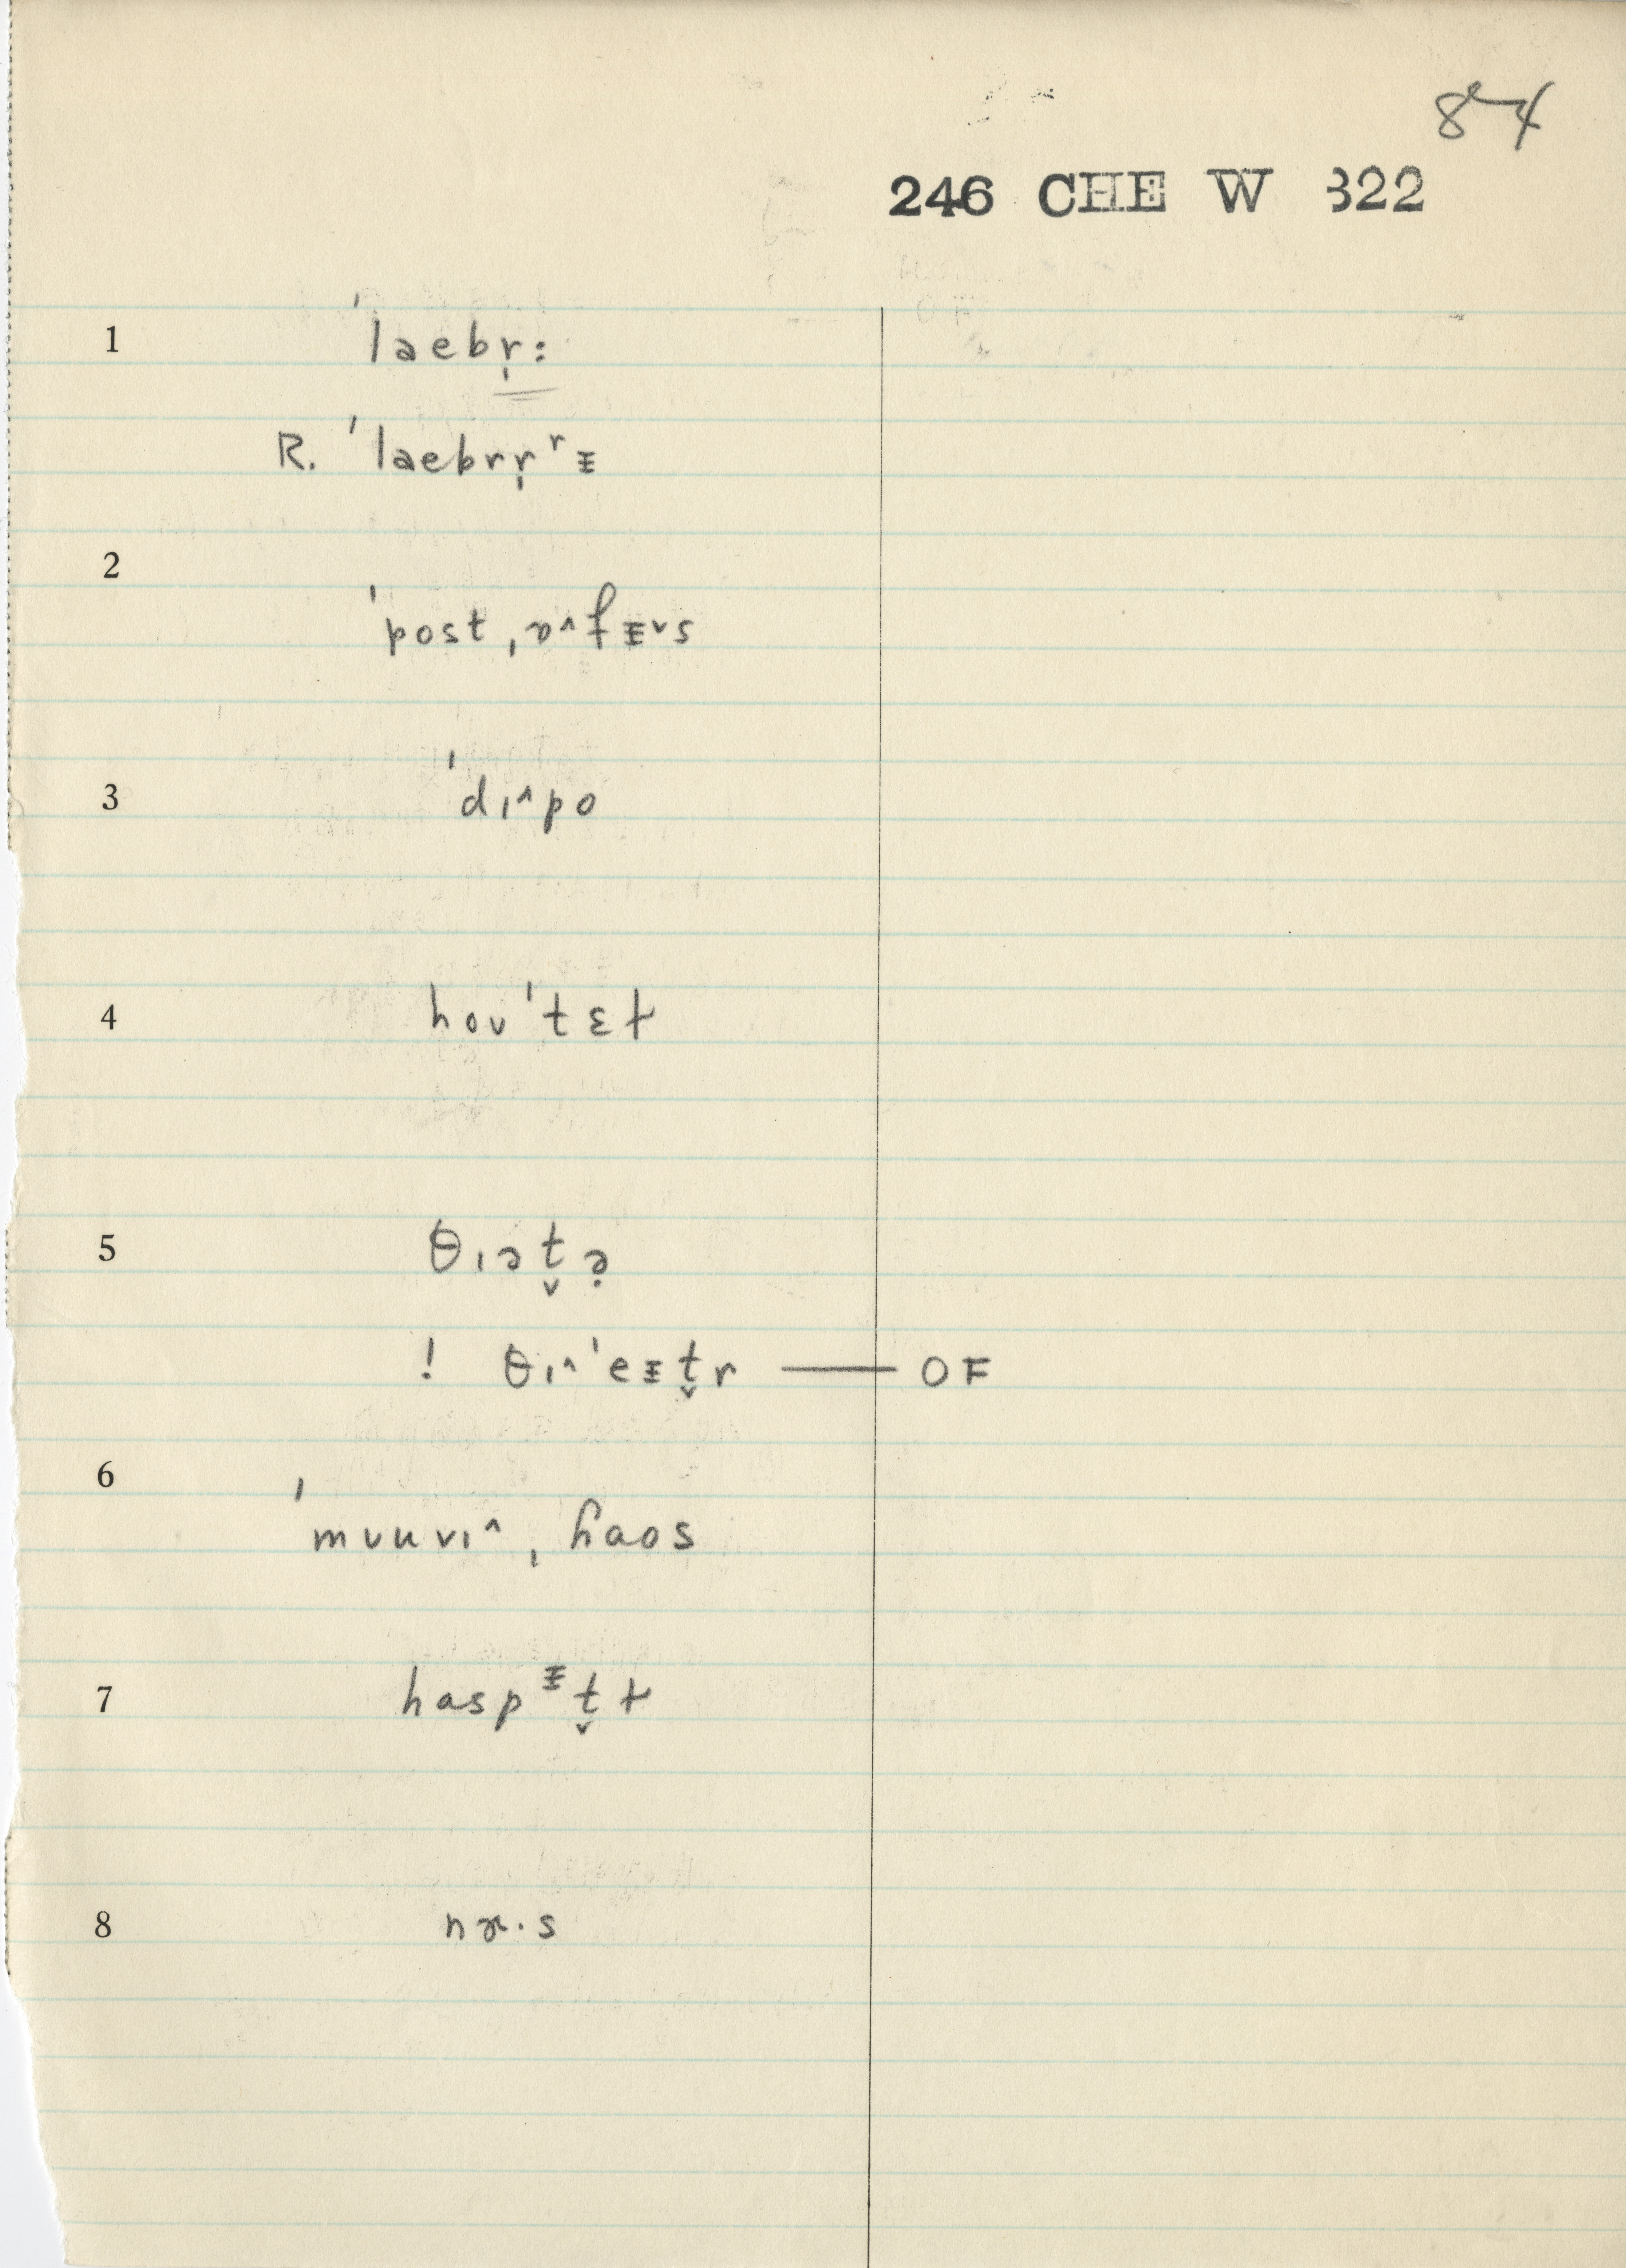 84
246 CHE W 322
1 ˈlaebr̩:
R. ˈlaebrr̩ ʳ ᵻ
2
ˈpost ˌɒ^fᵻ˅s
3 ˈdɪ^po
4 hoʊˈtɛɫ
5 θɪət̬ə̣
! θɪ^ˈeᵻt̬r — OF
6
ˈmʊuvɪ^ ˌhaos
7 haspᵻt̬ɫ
8 nɜ·s